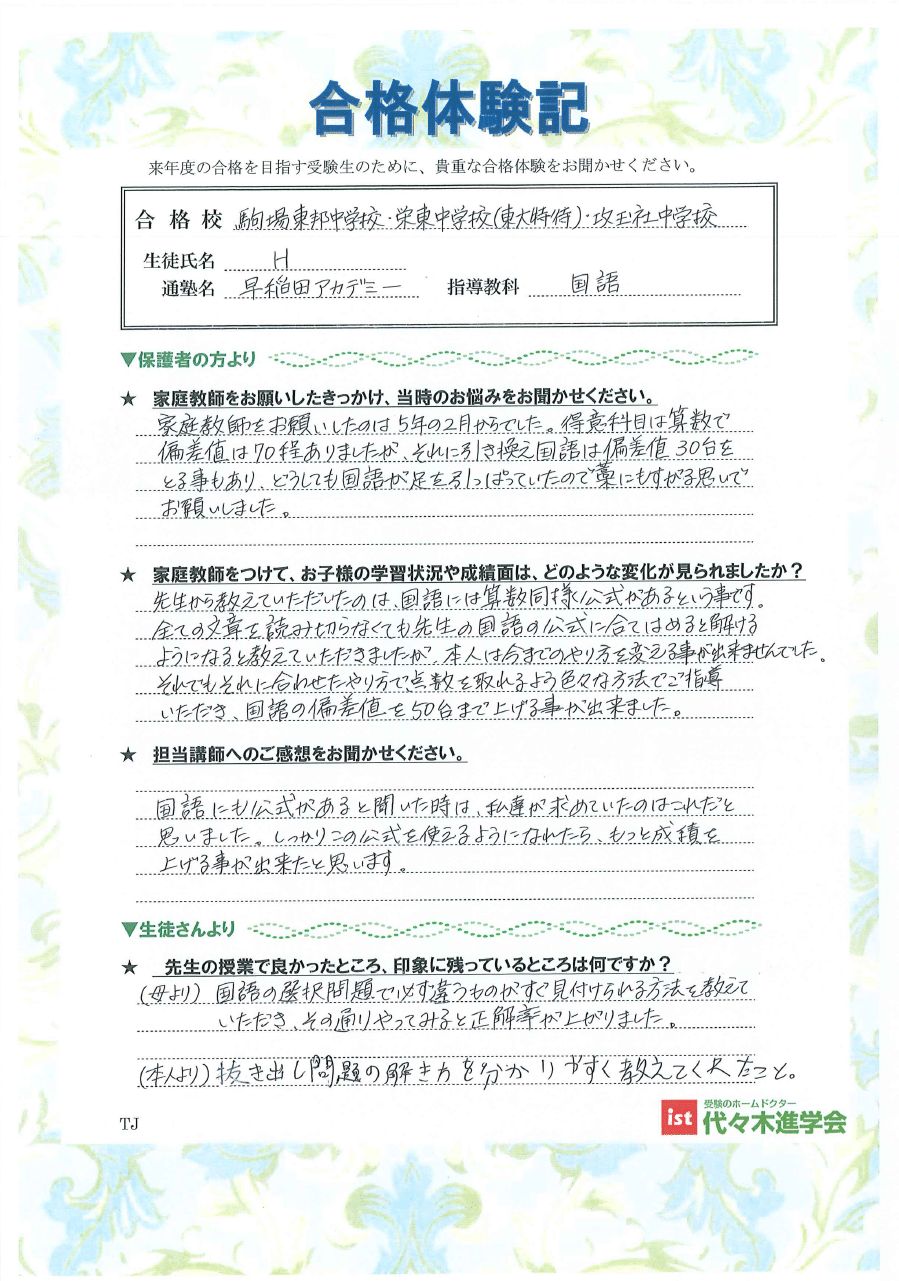 合格体験記
来年度の合格を目指す受験生のために、貴重な合格体験をお聞かせください。
合格校 駒場東邦中学校・栄東中学校(東大特待)・攻玉社中学校
生徒氏名 H
通塾名 早稲田アカデミー 指導教科 国語
▼保護者の方より
★ 家庭教師をお願いしたきっかけ、当時のお悩みをお聞かせください。
家庭教師をお願いしたのは5年の2月からでした。得意科目は算数で
偏差値は70程ありましたが、それに引き換え国語は偏差値30台を
とる事もあり、どうしても国語が足を引っぱっていたので藁にもすがる思いで
お願いしました。
★ 家庭教師をつけて、お子様の学習状況や成績面は、どのような変化が見られましたか？
先生から教えていただいたのは、国語には算数同様公式があるという事です。
全ての文章を読み切らなくても先生の国語の公式に合てはめると解ける
ようになると教えていただきましたが、本人は今までのやり方を変える事が出来ませんでした。
それでもそれに合わせたやり方で点数を取れるよう色々な方法でご指導
いただき、国語の偏差値を50台まで上げる事が出来ました。
★ 担当講師へのご感想をお聞かせください。
国語にも公式があると聞いた時は、私達が求めていたのはこれだと
思いました。しっかりこの公式を使えるようになれたら、もっと成積を
上げる事が出来たと思います。
▼生徒さんより
★ 先生の授業で良かったところ、印象に残っているところは何ですか？
(母より) 国語の選択問題で必ず違うものがすぐ見付けられる方法を教えて
いただき、その通りやってみると正解率が上がりました。
(本人より) 抜き出し問題の解き方を分かりやすく教えてくれたこと。
TJ
ist 受験のホームドクター
代々木進学会